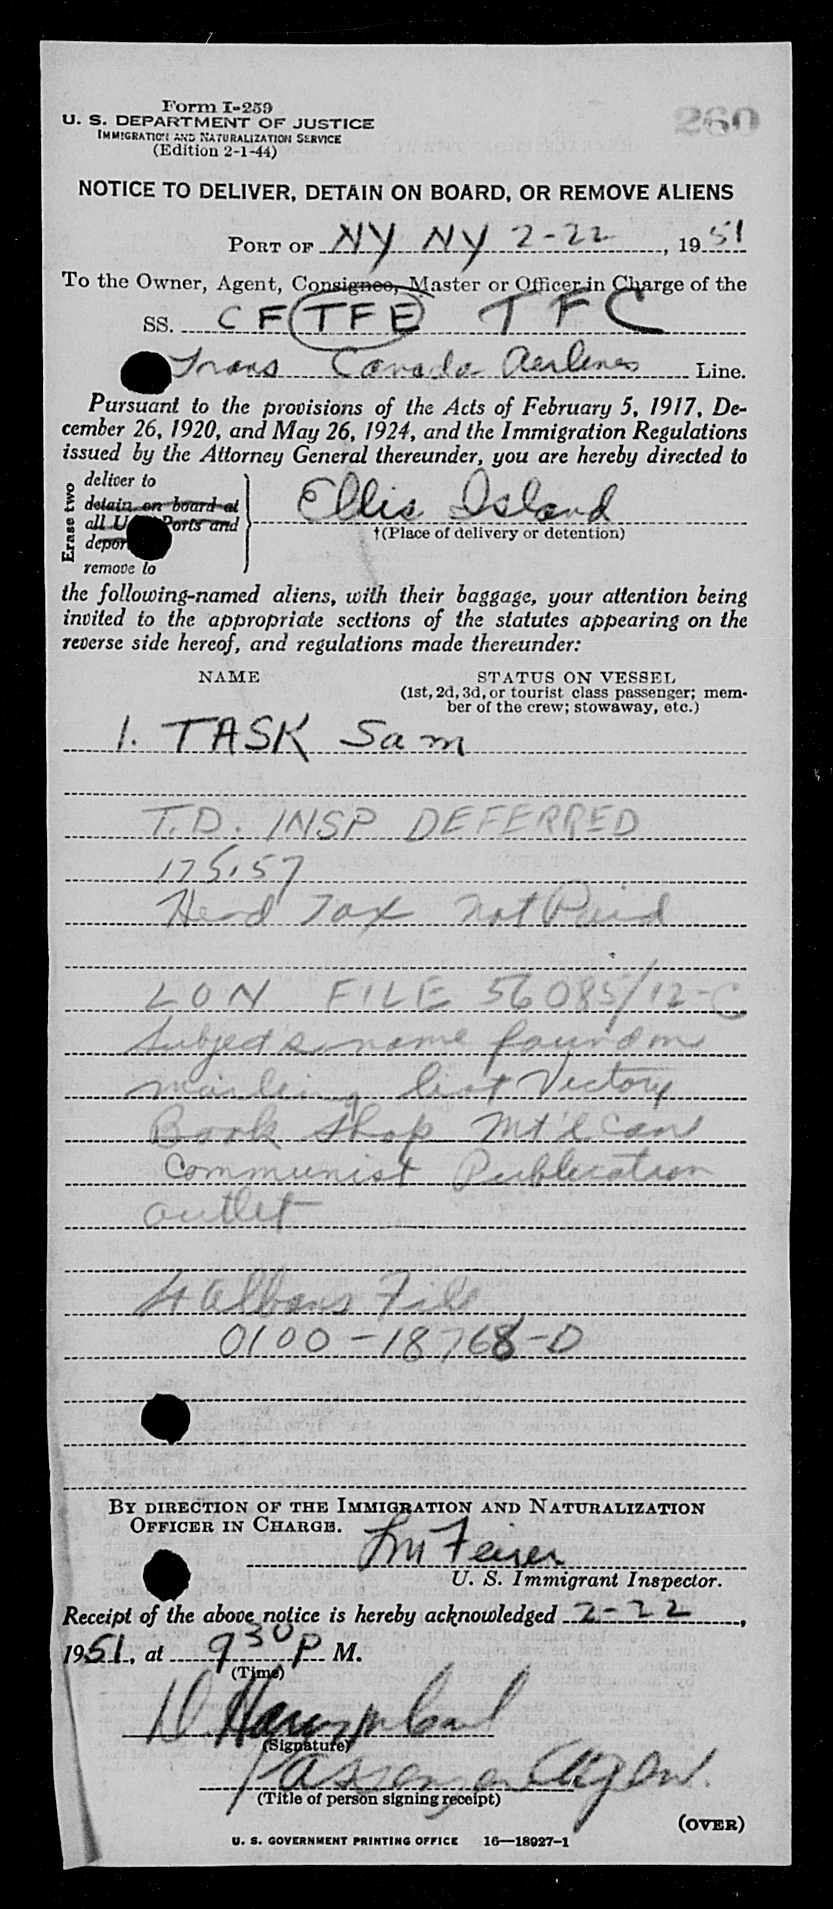 Form I-259
U. S. DEPARTMENT OF JUSTICE
IMMIGRATION AND NATURALIZATION SERVICE
(Edition 2-1-44)
260
NOTICE TO DELIVER, DETAIN ON BOARD, OR REMOVE ALIENS
PORT OF NY NY 2-22, 1951
To the Owner, Agent, Consignee, Master or Officer in Charge of the
SS. CF TFE TFC
Trans Canada Airlines Line.
Pursuant to the provisions of the Acts of February 5, 1917, De-
cember 26, 1920, and May 26, 1924, and the Immigration Regulations
issued by the Attorney General thereunder, you are hereby directed to
Erase two
deliver to
detain on board at
all U Ports and
depor
remove to
Ellis Island
†(Place of delivery or detention)
the following-named aliens, with their baggage, your attention being
invited to the appropriate sections of the statutes appearing on the
reverse side hereof, and regulations made thereunder:
NAME STATUS ON VESSEL
(1st, 2d, 3d, or tourist class passenger; mem-
ber of the crew; stowaway, etc.)
1. TASK Sam
T.D. INSP DEFERRED
175.57
Head Tax not Paid
LON FILE 56085/12-C
Subject's name found on
mailing list Victory
Book Shop Mt'l Can
Communist Publication
outlet
St Albans File
0100-18768-D
BY DIRECTION OF THE IMMIGRATION AND NATURALIZATION
OFFICER IN CHARGE.
U. S. Immigrant Inspector.
Receipt of the above notice is hereby acknowledged 2-22,
1951, at 930 P M.
(Time)
(Signature)
Passenger Agent.
(Title of person signing receipt)
(OVER)
U. S. GOVERNMENT PRINTING OFFICE 16—18927-1